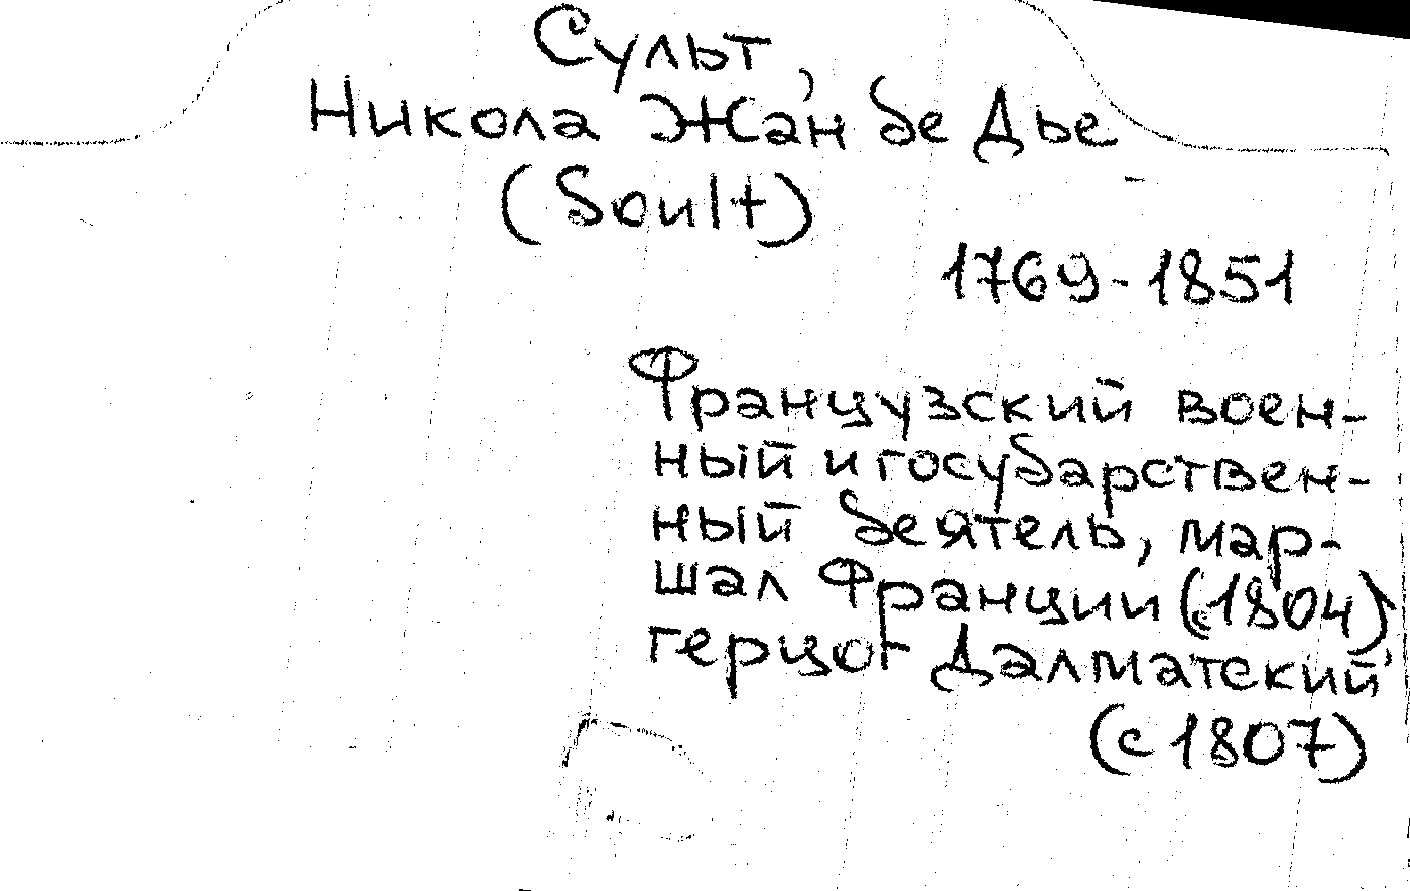 Сульт,
Никола Жан де Дье
(Soult)
1769-1851
Французский воен-
ный и государствен-
ный деятель, мар-
шал Франции (с 1804),
герцог Далматский
(с 1807)